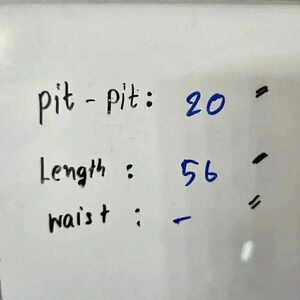 pit - pit : 20 "
Length : 56 "
waist : - "